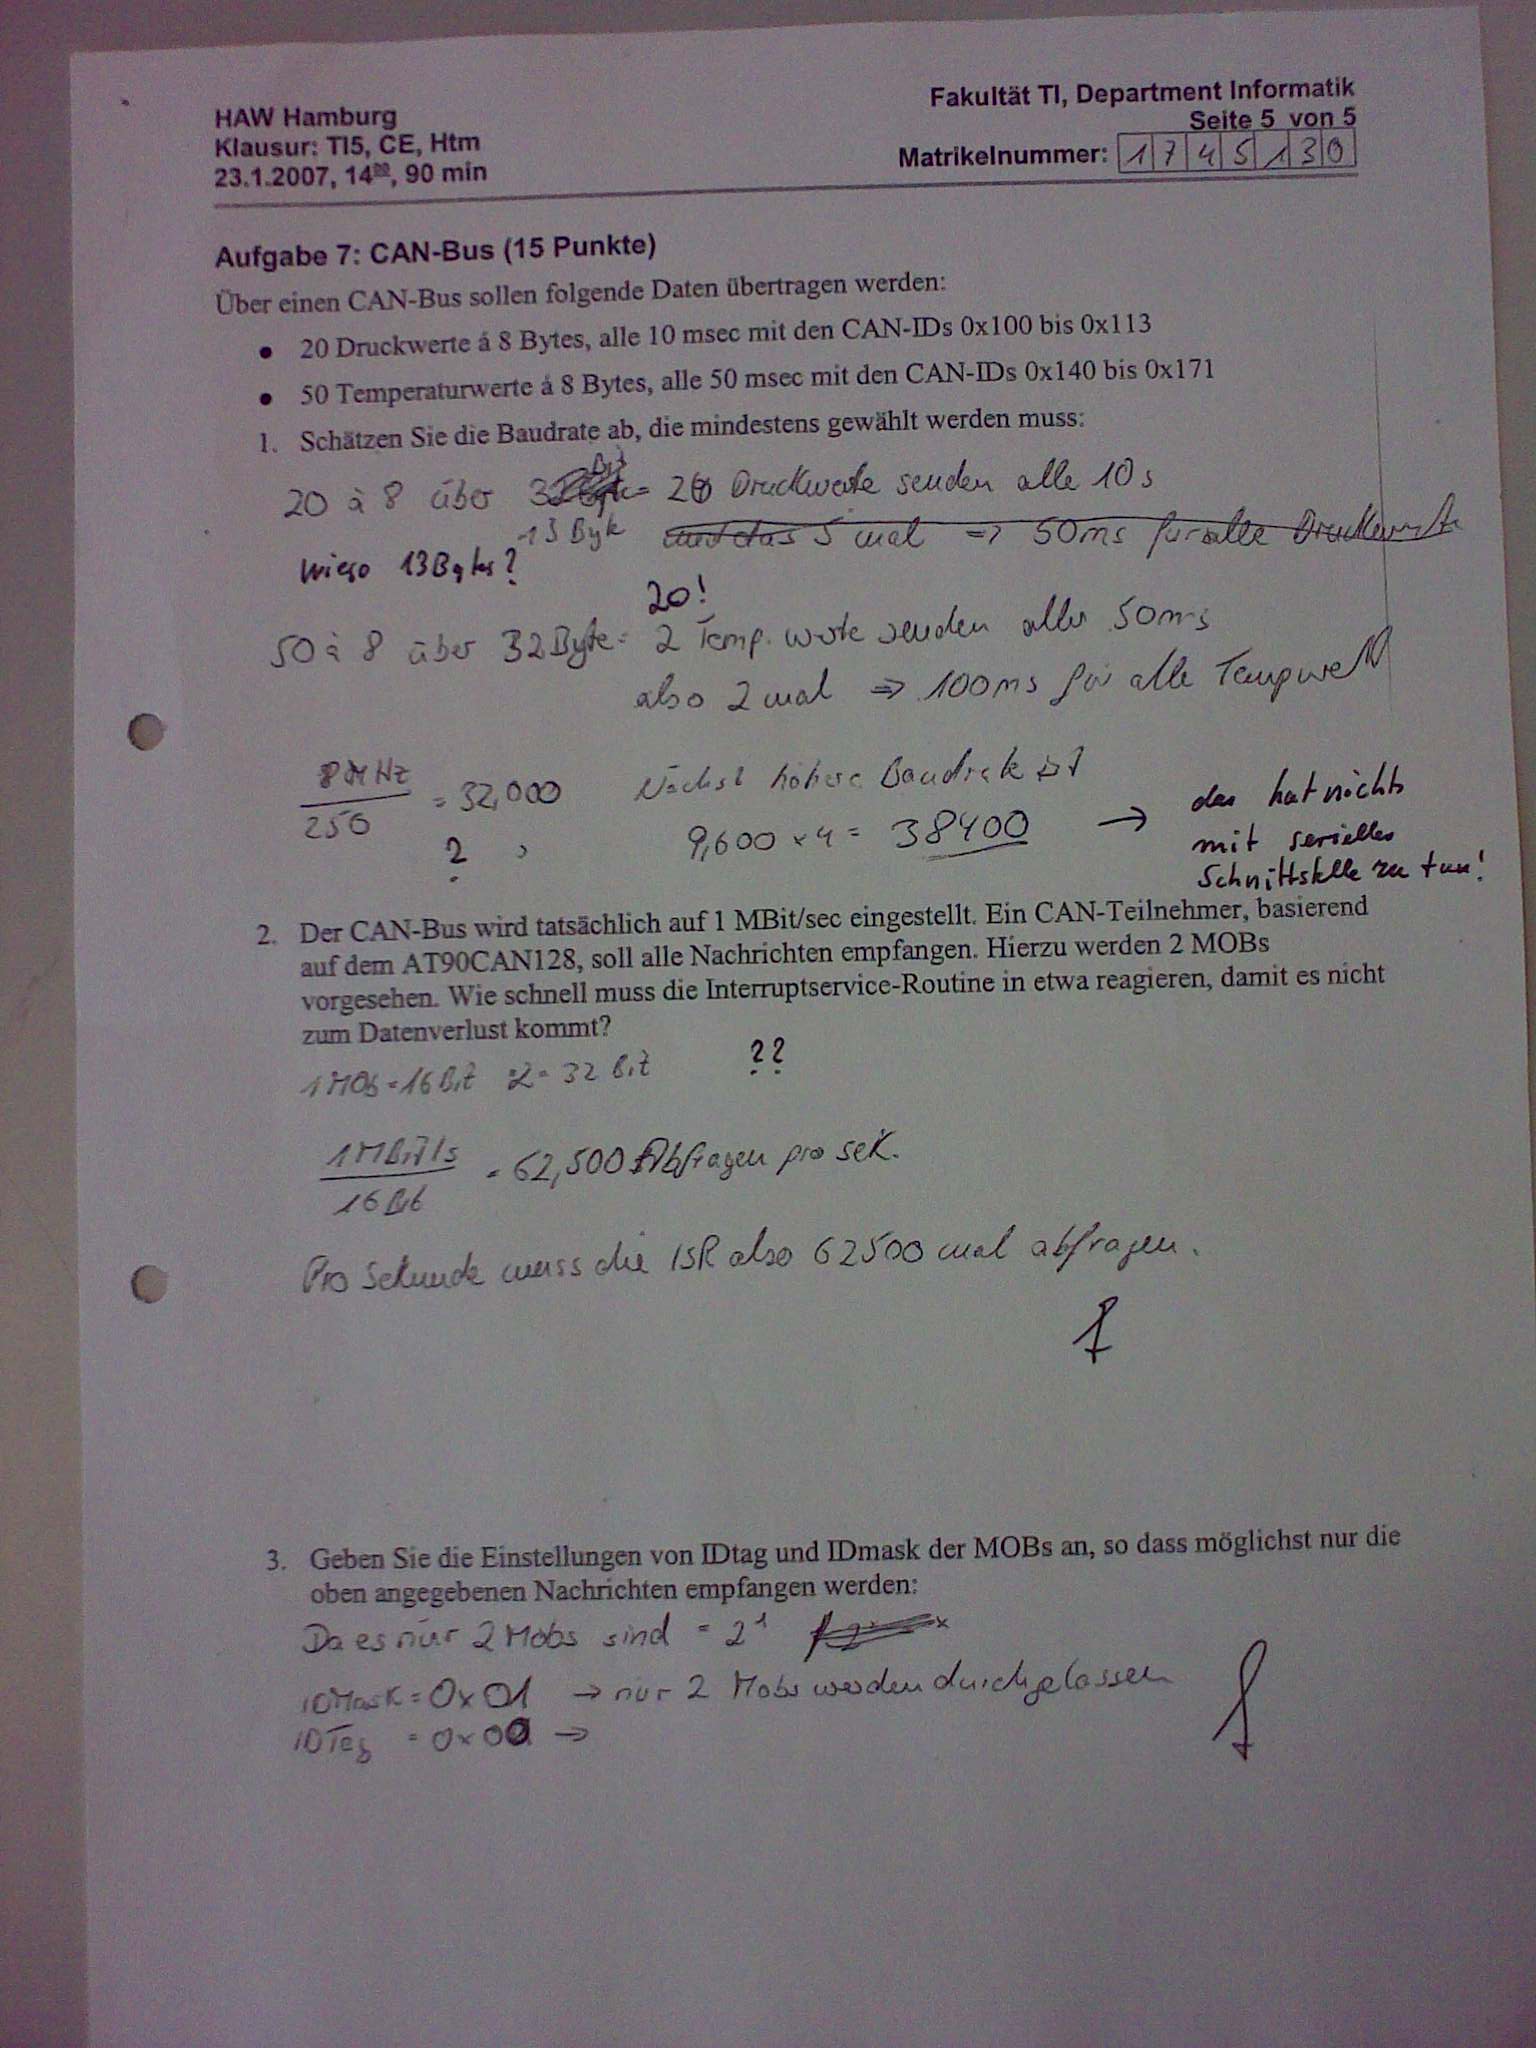 HAW Hamburg
Klausur: TI5, CE, Htm
23.1.2007, 14⁰⁰, 90 min
Fakultät TI, Department Informatik
Seite 5 von 5
Matrikelnummer: 1745130
Aufgabe 7: CAN-Bus (15 Punkte)
Über einen CAN-Bus sollen folgende Daten übertragen werden:
• 20 Druckwerte á 8 Bytes, alle 10 msec mit den CAN-IDs 0x100 bis 0x113
• 50 Temperaturwerte á 8 Bytes, alle 50 msec mit den CAN-IDs 0x140 bis 0x171
1. Schätzen Sie die Baudrate ab, die mindestens gewählt werden muss:
20 à 8 über = 20 Druckwerte senden alle 10s
13 Byte und das 5 mal => 50ms für alle Druckwerte
wieso 13Bytes?
20!
50 à 8 über 32Byte = 2 Temp. werte senden alle 50ms
also 2 mal => 100ms für alle Tempwert
8MHz / 256 = 32,000
?
Nächst höhere Baudrate ist
9,600 x 4 = 38400 →
das hat nichts
mit serieller
Schnittstelle zu tun!
2. Der CAN-Bus wird tatsächlich auf 1 MBit/sec eingestellt. Ein CAN-Teilnehmer, basierend
auf dem AT90CAN128, soll alle Nachrichten empfangen. Hierzu werden 2 MOBs
vorgesehen. Wie schnell muss die Interruptservice-Routine in etwa reagieren, damit es nicht
zum Datenverlust kommt?
1MOb = 16Bit ·2 = 32 Bit ??
1MBit/s / 16Bit = 62,500 Abfragen pro sek.
Pro Sekunde muss die ISR also 62500 mal abfragen.
f
3. Geben Sie die Einstellungen von IDtag und IDmask der MOBs an, so dass möglichst nur die
oben angegebenen Nachrichten empfangen werden:
Da es nur 2 Mobs sind = 2¹
IDMask = 0x01 → nur 2 Mobs werden durchgelassen
IDTag = 0x00 →
f